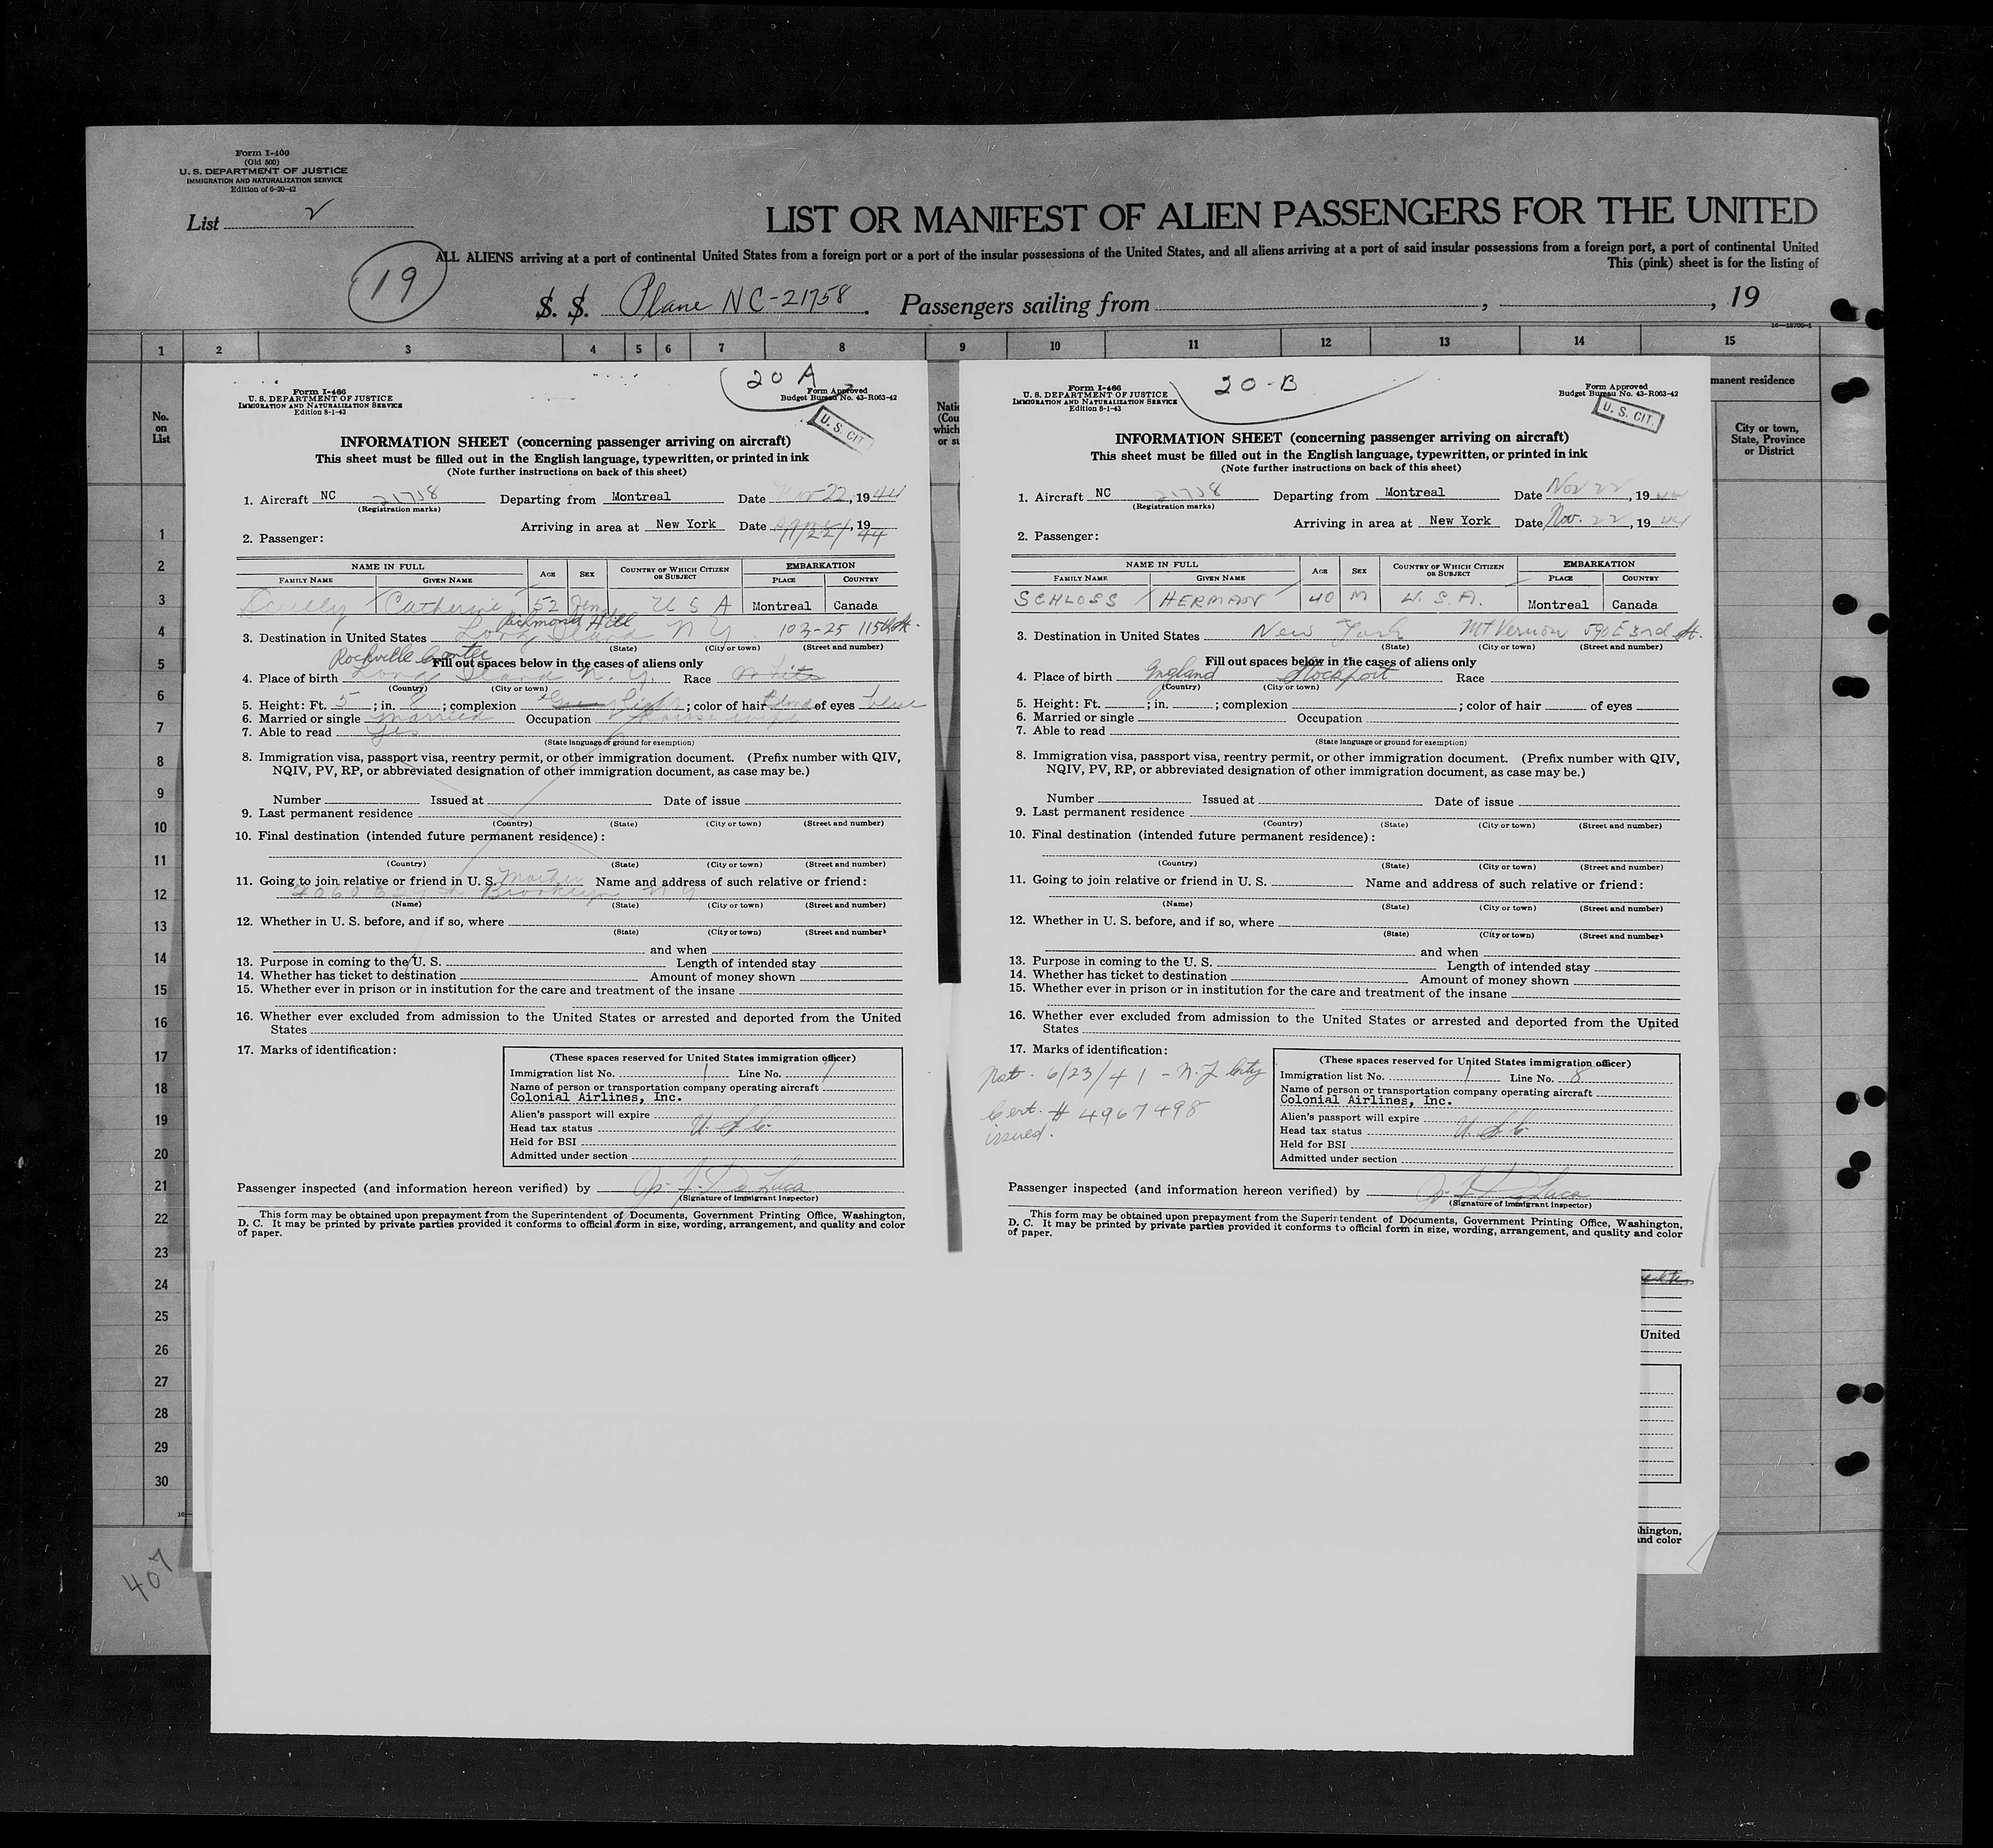 Form I-400
(Old 500)
U. S. DEPARTMENT OF JUSTICE
IMMIGRATION AND NATURALIZATION SERVICE
Edition of 6-20-42
List 2
LIST OR MANIFEST OF ALIEN PASSENGERS FOR THE UNITED
ALL ALIENS arriving at a port of continental United States from a foreign port or a port of the insular possessions of the United States, and all aliens arriving at a port of said insular possessions from a foreign port, a port of continental United
This (pink) sheet is for the listing of
19
S. S. Plane NC-21758. Passengers sailing from , , 19
1 2 3 4 5 6 7 8 9 10 11 12 13 14 15
No. on List
1
2
3
4
5
6
7
8
9
10
11
12
13
14
15
16
17
18
19
20
21
22
23
24
25
26
27
28
29
30
407
20 A
Form I-466
U. S. DEPARTMENT OF JUSTICE
IMMIGRATION AND NATURALIZATION SERVICE
Edition 8-1-43
Form Approved
Budget Bureau No. 43-R063-42
U. S. CIT.
INFORMATION SHEET (concerning passenger arriving on aircraft)
This sheet must be filled out in the English language, typewritten, or printed in ink
(Note further instructions on back of this sheet)
1. Aircraft NC 21758 Departing from Montreal Date Nov 22, 1944
(Registration marks)
Arriving in area at New York Date 11/22/, 1944
2. Passenger:
NAME IN FULL AGE SEX COUNTRY OF WHICH CITIZEN OR SUBJECT EMBARKATION
FAMILY NAME GIVEN NAME PLACE COUNTRY
Catherine 52 Fem U S A Montreal Canada
Richmond Hill
3. Destination in United States Long Island N Y 103-25 115th St.
(State) (City or town) (Street and number)
Rockville Center
Fill out spaces below in the cases of aliens only
4. Place of birth Long Island N. Y. Race White
(Country) (City or town)
5. Height: Ft. 5; in. 8; complexion light; color of hair Blond of eyes blue
6. Married or single married Occupation House wife
7. Able to read yes
(State language or ground for exemption)
8. Immigration visa, passport visa, reentry permit, or other immigration document. (Prefix number with QIV,
NQIV, PV, RP, or abbreviated designation of other immigration document, as case may be.)
Number Issued at Date of issue
9. Last permanent residence
(Country) (State) (City or town) (Street and number)
10. Final destination (intended future permanent residence):
(Country) (State) (City or town) (Street and number)
11. Going to join relative or friend in U. S. Mother Name and address of such relative or friend:
Brooklyn N Y
(Name) (State) (City or town) (Street and number)
12. Whether in U. S. before, and if so, where
(State) (City or town) (Street and number)
and when
13. Purpose in coming to the U. S. Length of intended stay
14. Whether has ticket to destination Amount of money shown
15. Whether ever in prison or in institution for the care and treatment of the insane
16. Whether ever excluded from admission to the United States or arrested and deported from the United
States
17. Marks of identification:
(These spaces reserved for United States immigration officer)
Immigration list No. 1 Line No. 7
Name of person or transportation company operating aircraft
Colonial Airlines, Inc.
Alien's passport will expire
Head tax status U. S. C.
Held for BSI
Admitted under section
Passenger inspected (and information hereon verified) by J. F. De Luca
(Signature of immigrant inspector)
This form may be obtained upon prepayment from the Superintendent of Documents, Government Printing Office, Washington,
D. C. It may be printed by private parties provided it conforms to official form in size, wording, arrangement, and quality and color
of paper.
20-B
Form I-466
U. S. DEPARTMENT OF JUSTICE
IMMIGRATION AND NATURALIZATION SERVICE
Edition 8-1-43
Form Approved
Budget Bureau No. 43-R063-42
U. S. CIT.
INFORMATION SHEET (concerning passenger arriving on aircraft)
This sheet must be filled out in the English language, typewritten, or printed in ink
(Note further instructions on back of this sheet)
1. Aircraft NC 21758 Departing from Montreal Date Nov 22, 1944
(Registration marks)
Arriving in area at New York Date Nov. 22, 1944
2. Passenger:
NAME IN FULL AGE SEX COUNTRY OF WHICH CITIZEN OR SUBJECT EMBARKATION
FAMILY NAME GIVEN NAME PLACE COUNTRY
SCHLOSS HERMAN 40 M U. S. A. Montreal Canada
3. Destination in United States New York Mt Vernon 590 E 3rd St.
(State) (City or town) (Street and number)
Fill out spaces below in the cases of aliens only
4. Place of birth England Stockport Race
(Country) (City or town)
5. Height: Ft. ; in. ; complexion ; color of hair of eyes
6. Married or single Occupation
7. Able to read
(State language or ground for exemption)
8. Immigration visa, passport visa, reentry permit, or other immigration document. (Prefix number with QIV,
NQIV, PV, RP, or abbreviated designation of other immigration document, as case may be.)
Number Issued at Date of issue
9. Last permanent residence
(Country) (State) (City or town) (Street and number)
10. Final destination (intended future permanent residence):
(Country) (State) (City or town) (Street and number)
11. Going to join relative or friend in U. S. Name and address of such relative or friend:
(Name) (State) (City or town) (Street and number)
12. Whether in U. S. before, and if so, where
(State) (City or town) (Street and number)
and when
13. Purpose in coming to the U. S. Length of intended stay
14. Whether has ticket to destination Amount of money shown
15. Whether ever in prison or in institution for the care and treatment of the insane
16. Whether ever excluded from admission to the United States or arrested and deported from the United
States
17. Marks of identification:
Nat. 6/23/41 - N. Y. City
Cert. # 4967498
issued.
(These spaces reserved for United States immigration officer)
Immigration list No. 1 Line No. 8
Name of person or transportation company operating aircraft
Colonial Airlines, Inc.
Alien's passport will expire
Head tax status U. S. C.
Held for BSI
Admitted under section
Passenger inspected (and information hereon verified) by J. F. De Luca
(Signature of immigrant inspector)
This form may be obtained upon prepayment from the Superintendent of Documents, Government Printing Office, Washington,
D. C. It may be printed by private parties provided it conforms to official form in size, wording, arrangement, and quality and color
of paper.
manent residence
City or town,
State, Province
or District
United
hington,
and color